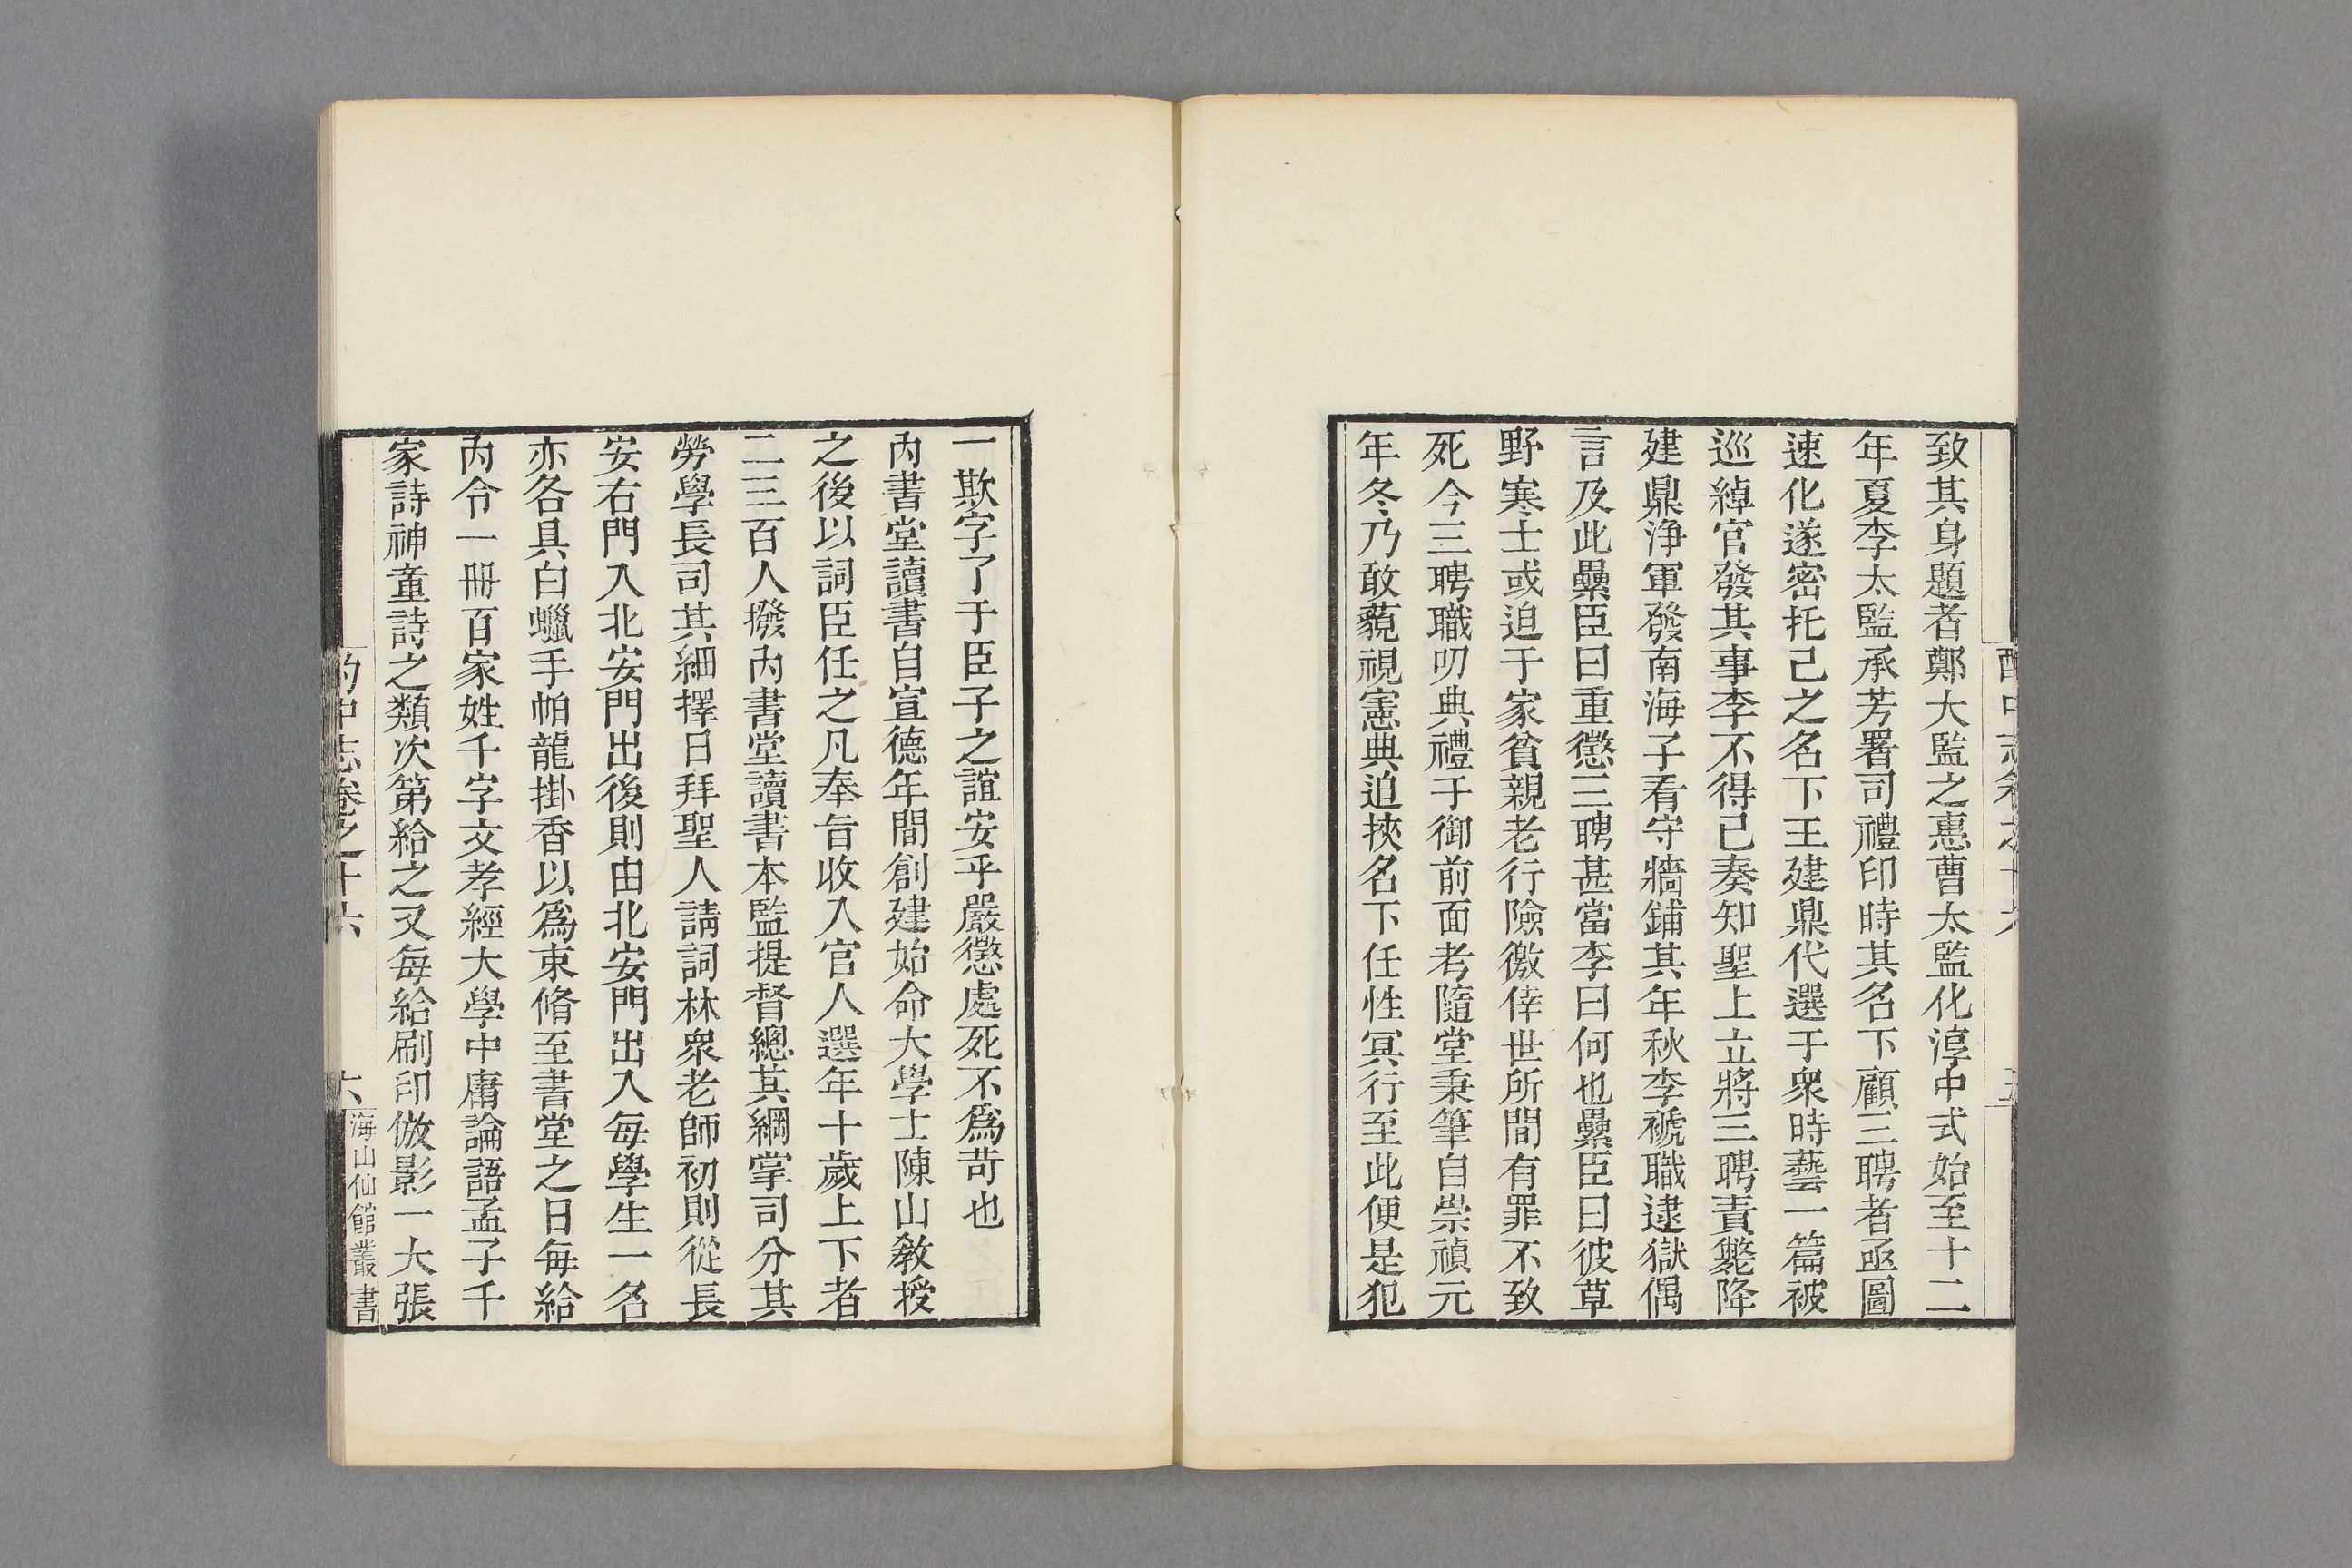 酌中志卷之十六
五
致其身題者鄭大監之惠曹太監化淳中式始至十二
年夏李太監承芳署司禮印時其名下顧三聘者亟圖
速化遂密托己之名下王建鼎代選于衆時藝一篇被
巡綽官發其事李不得已奏知聖上立將三聘責斃降
建鼎淨軍發南海子看守牆鋪其年秋李褫職逮獄偶
言及此纍臣曰重懲三聘甚當李曰何也纍臣曰彼草
野寒士或迫于家貧親老行險徼倖世所間有罪不致
死今三聘職叨典禮于御前面考隨堂秉筆自崇禎元
年冬乃敢藐視憲典迫挾名下任性冥行至此便是犯
一欺字了于臣子之誼安乎嚴懲處死不爲苛也
內書堂讀書自宣德年間創建始命大學士陳山敎授
之後以詞臣任之凡奉旨收入官人選年十歲上下者
二三百人撥內書堂讀書本監提督總其綱掌司分其
勞學長司其細擇日拜聖人請詞林衆老師初則從長
安右門入北安門出後則由北安門出入每學生一名
亦各具白蠟手帕龍掛香以爲束脩至書堂之日每給
內令一冊百家姓千字文孝經大學中庸論語孟子千
家詩神童詩之類次第給之又每給刷印倣影一大張
酌中志卷之十六
六
海山仙館叢書